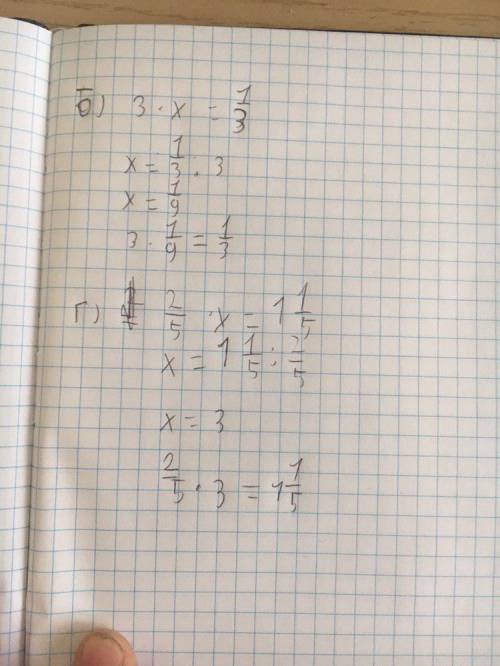 б) 3 · x = 1/3
x = 1/3 · 3
x = 1/9
3 · 1/9 = 1/3
г) 2/5 · x = 1 1/5
x = 1 1/5 : 2/5
x = 3
2/5 · 3 = 1 1/5